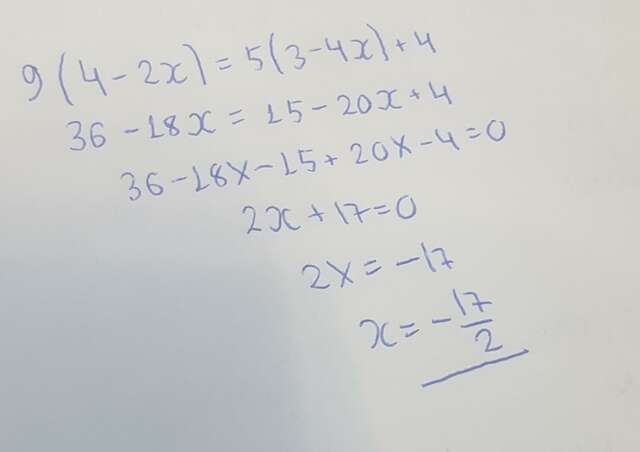 9(4-2x)=5(3-4x)+4
36-18x=15-20x+4
36-18x-15+20x-4=0
2x+17=0
2x=-17
x=-17/2